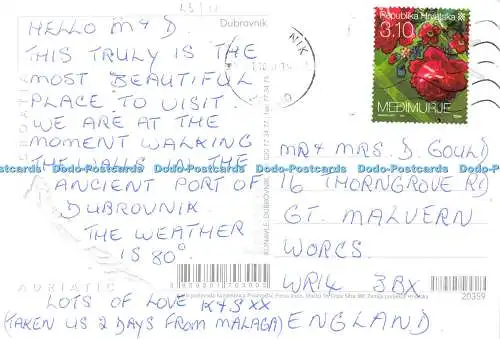 Dubrovnik
HELLO M & D
THIS TRULY IS THE
MOST BEAUTIFUL
PLACE TO VISIT.
WE ARE AT THE
MOMENT WALKING
THE WALLS IN THE
ANCIENT PORT OF
DUBROVNIK
THE WEATHER
IS 80°.
LOTS OF LOVE K & S XX
(TAKEN US 2 DAYS FROM MALAGA)
ADRIATIC
Republika Hrvatska
3.10
MEĐIMURJE
MR & MRS. D. GOULD
16 THORNGROVE RD
GT. MALVERN
WORCS.
WR14 3BX
ENGLAND
20359
Dodo-Postcards Dodo-Postcards Dodo-Postcards Dodo-Postcards Dodo-Postcards Dodo-Postcards